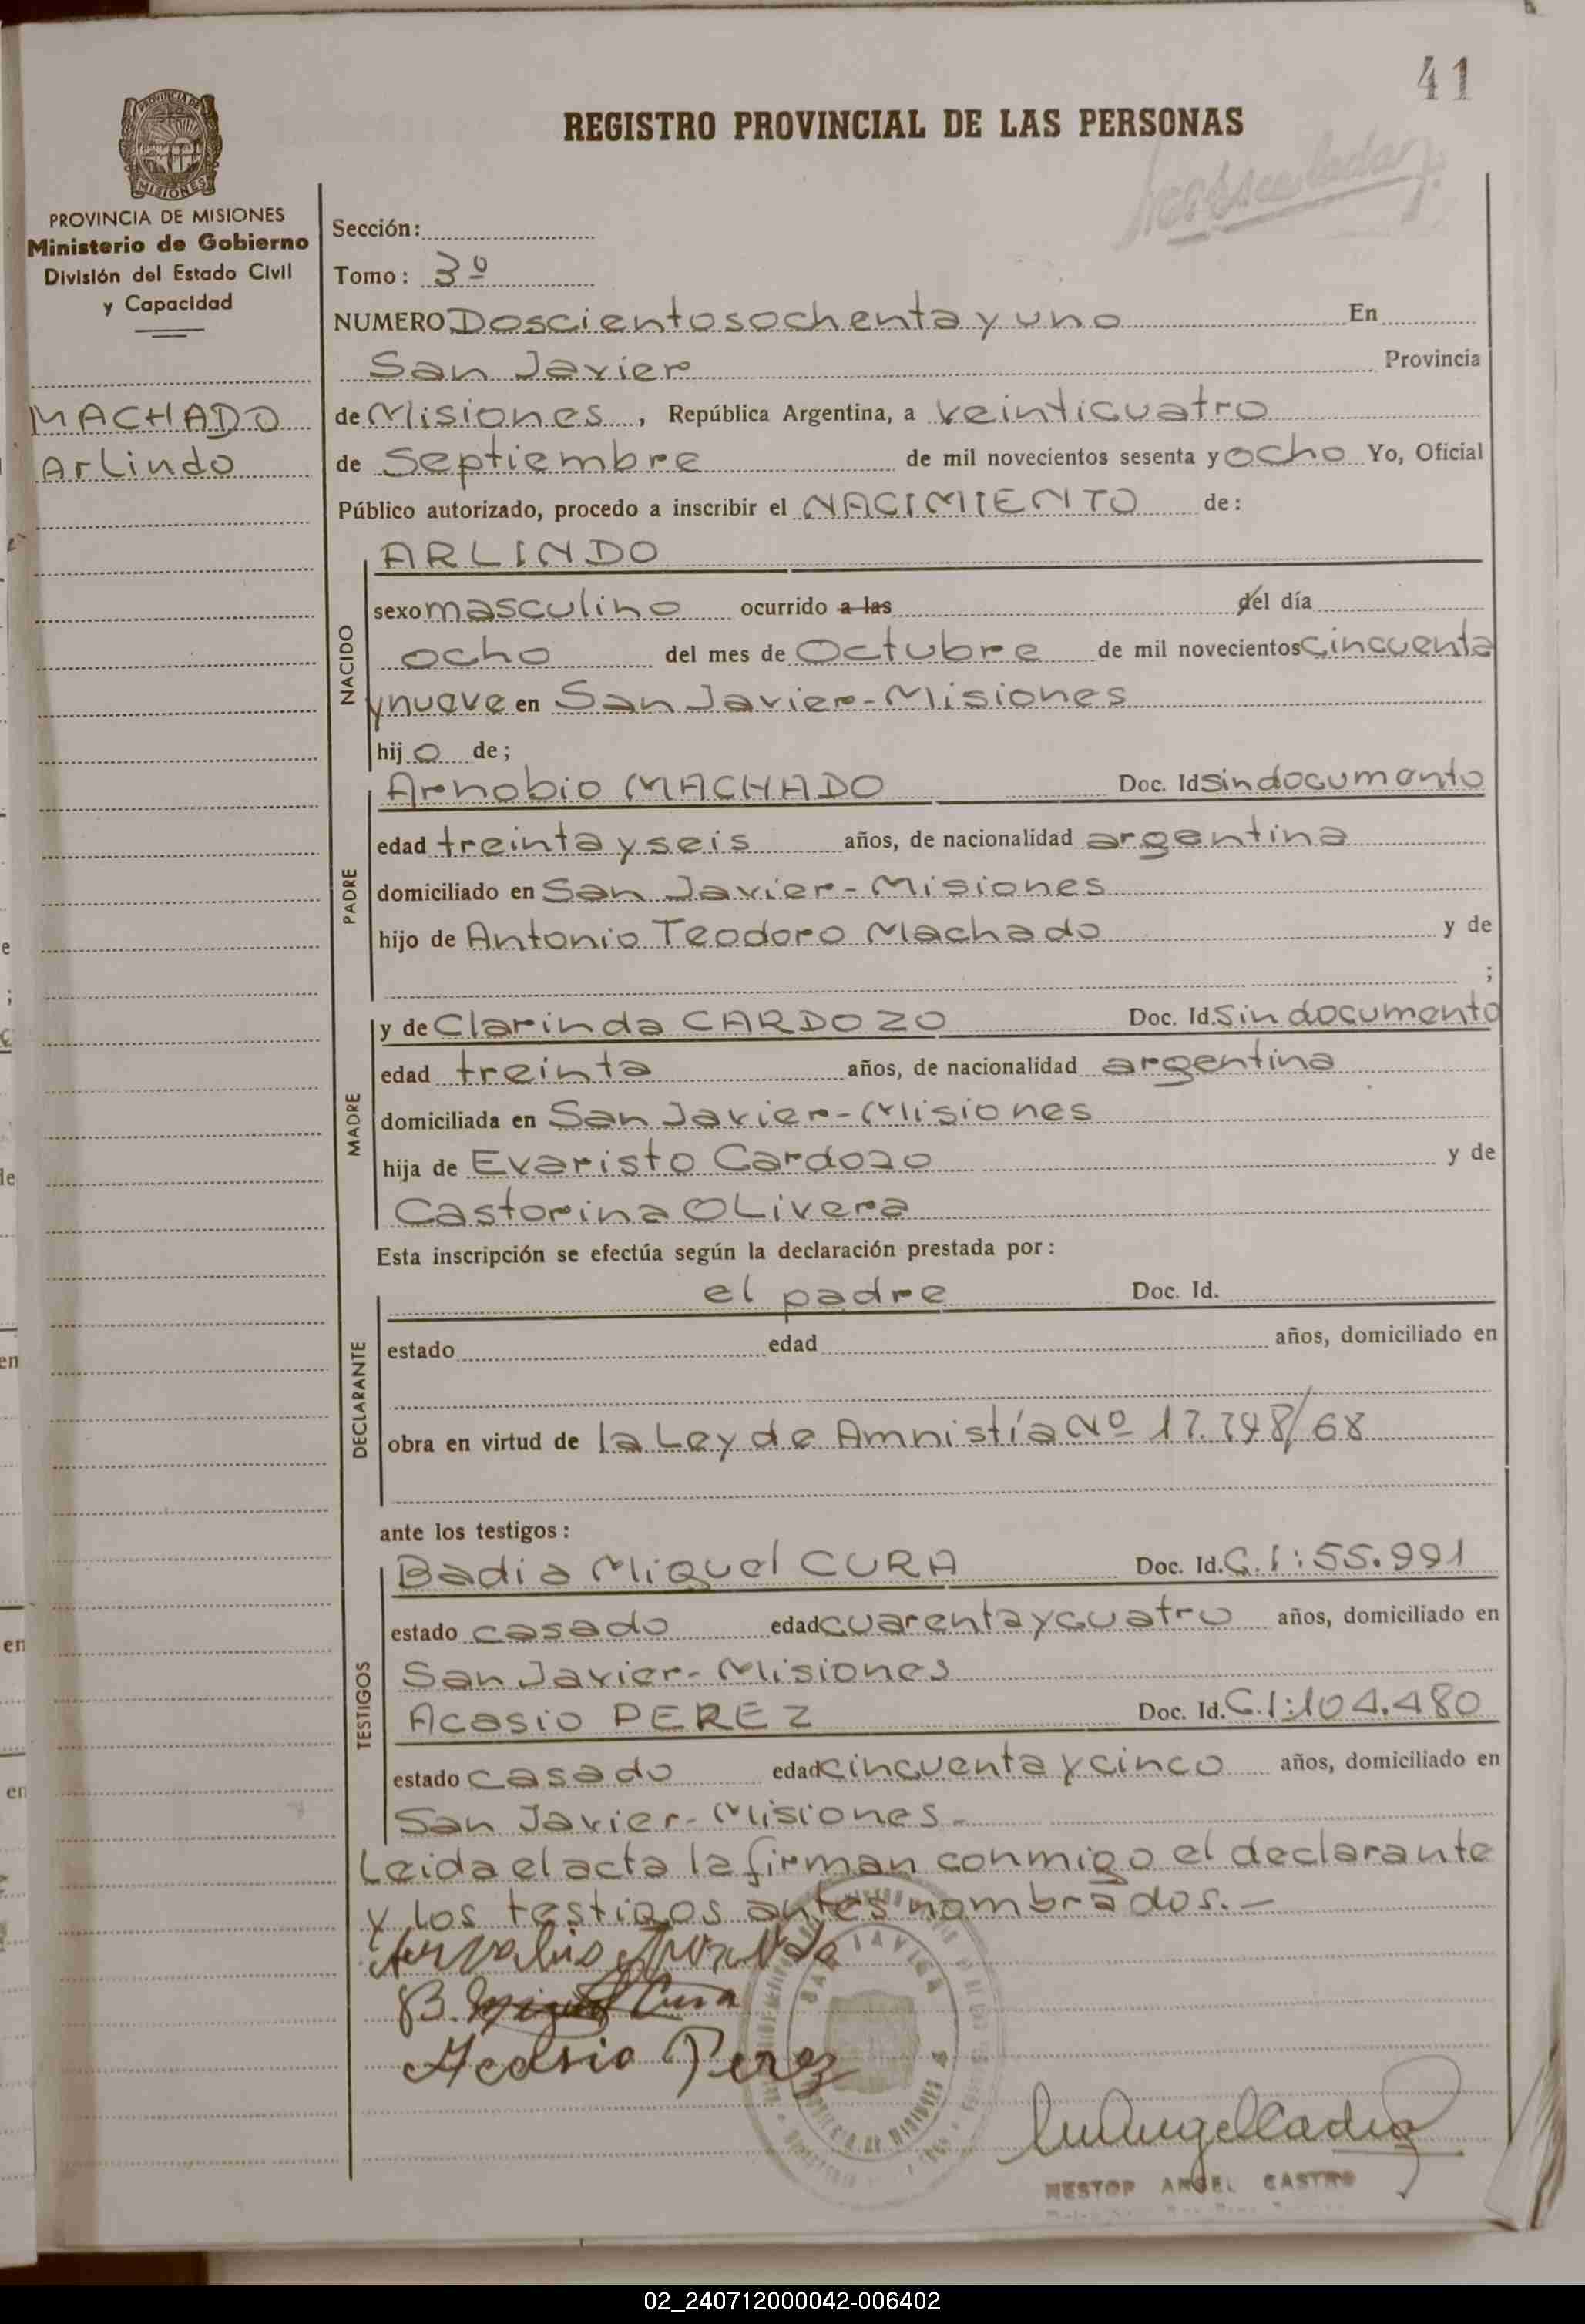 41
REGISTRO PROVINCIAL DE LAS PERSONAS
PROVINCIA DE MISIONES
Ministerio de Gobierno
División del Estado Civil
y Capacidad
MACHADO
Arlindo
Sección:
Tomo: 3º
NUMERO Doscientos ochenta y uno En
San Javier Provincia
de Misiones, República Argentina, a veinticuatro
de Septiembre de mil novecientos sesenta y ocho Yo, Oficial
Público autorizado, procedo a inscribir el NACIMIENTO de:
NACIDO
ARLINDO
sexo masculino ocurrido a las del día
ocho del mes de Octubre de mil novecientos cincuenta
y nueve en San Javier-Misiones
hijo de;
PADRE
Arnobio MACHADO Doc. Id sin documento
edad treinta y seis años, de nacionalidad argentina
domiciliado en San Javier-Misiones
hijo de Antonio Teodoro Machado y de
;
MADRE
y de Clarinda CARDOZO Doc. Id. sin documento
edad treinta años, de nacionalidad argentina
domiciliada en San Javier-Misiones
hija de Evaristo Cardozo y de
Castorina Olivera
Esta inscripción se efectúa según la declaración prestada por:
DECLARANTE
el padre Doc. Id.
estado edad años, domiciliado en
obra en virtud de la Ley de Amnistía Nº 17.798/68
ante los testigos:
TESTIGOS
Badia Miguel CURA Doc. Id. C.I: 55.991
estado casado edad cuarenta y cuatro años, domiciliado en
San Javier-Misiones
Acasio PEREZ Doc. Id. C.I:104.480
estado casado edad cincuenta y cinco años, domiciliado en
San Javier-Misiones-
Leida el acta la firman conmigo el declarante
y los testigos antes nombrados.-
B. Miguel Cura
Acasio Perez
SAN JAVIER
NESTOR ANGEL CASTRO
02_240712000042-006402